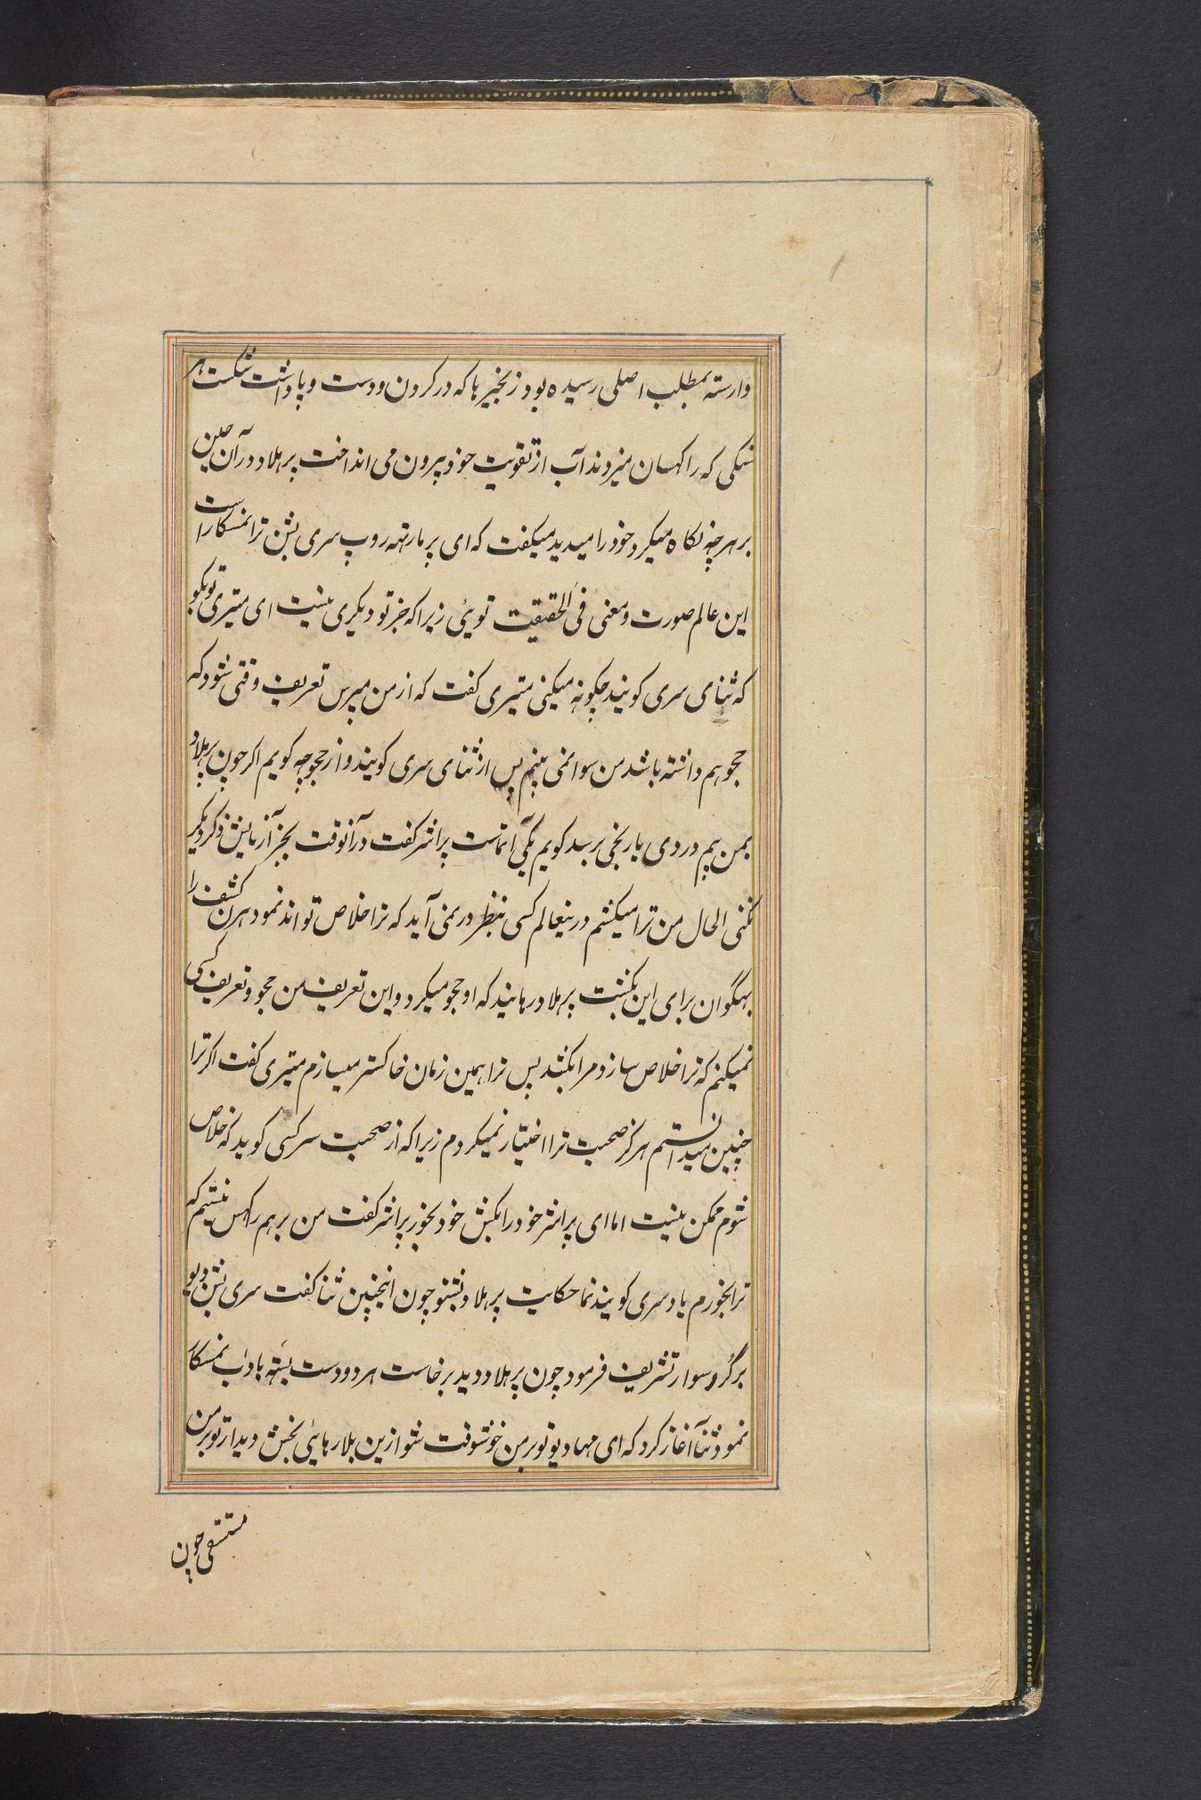 وارسته بمطلب اصلی رسیده بود زنجیرها که در کردن و دست و پا داشت شکست هر
سنکی که راکهسان میزدند آب از تقویت خود بیرون می انداخت پرهلاد در آن حین
بر هرچه نکاه میکرد خود را میدید میکفت که ای پرمارتهه روپ سری بشن ترا نمسکار است
این عالم صورت و معنی فی الحقیقت توئی زیراکه جز تو دیکری نیست ای متیری تو بکو
که ثنای سری کوبیند چکونه میکنی متیری کفت که از من مپرس تعریف وقتی شود که
ججو هم دانسته باشد من سوا نمی بینم پس از ثنای سری کوبیند و از ججو چه کویم اکر چون پرهلاد
بمن هم دردی یا رنجی برسد کویم یکی آتماست پرانتر کفت در آنوقت بجز آزمایش ذکر دیکر
نکنی الحال من ترا میکشم درینعالم کسی بنظر در نمی آید که ترا خلاص تواند نمود هرن کشف را
بهگوان برای این بکشت پرهلاد رهانید که او ججو میکرد و این تعریف من ججو و تعریف کسی
نمیکنم که ترا خلاص سازد مرا بکشد پس ترا همین زمان خاکستر میسازم متیری کفت اکر ترا
چنین میدانستم هرکز صحبت ترا اختیار نمیکردم زیراکه از صحبت سرکسی کوید که خلاص
شوم ممکن نیست اما ای پرانتر خود را بکش خود بخور پرانتر کفت من برهم راکهس نیستم که
ترا بخورم یاد سری کوبیند نما حکایت پرهلاد بشنو چون اینچنین ثنا کفت سری بشن دیو
بر گرو سوار تشریف فرمود چون پرهلاد دید برخاست هر دو دست بسته بادب نمسکار
نمود ثنا آغاز کرد که ای مهادیو تو بر من خوشوقت شو ازین بلا رهائی بخش دیدار تو بر من
مستسقی چون